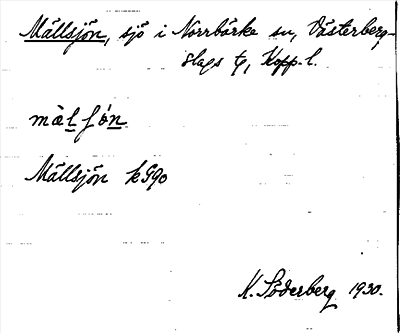 Mällsjön, sjö i Norrbärke sn, Västerberg-
slags tg, Kopp. l.
Mällsjön k 590
K. Söderberg 1930.